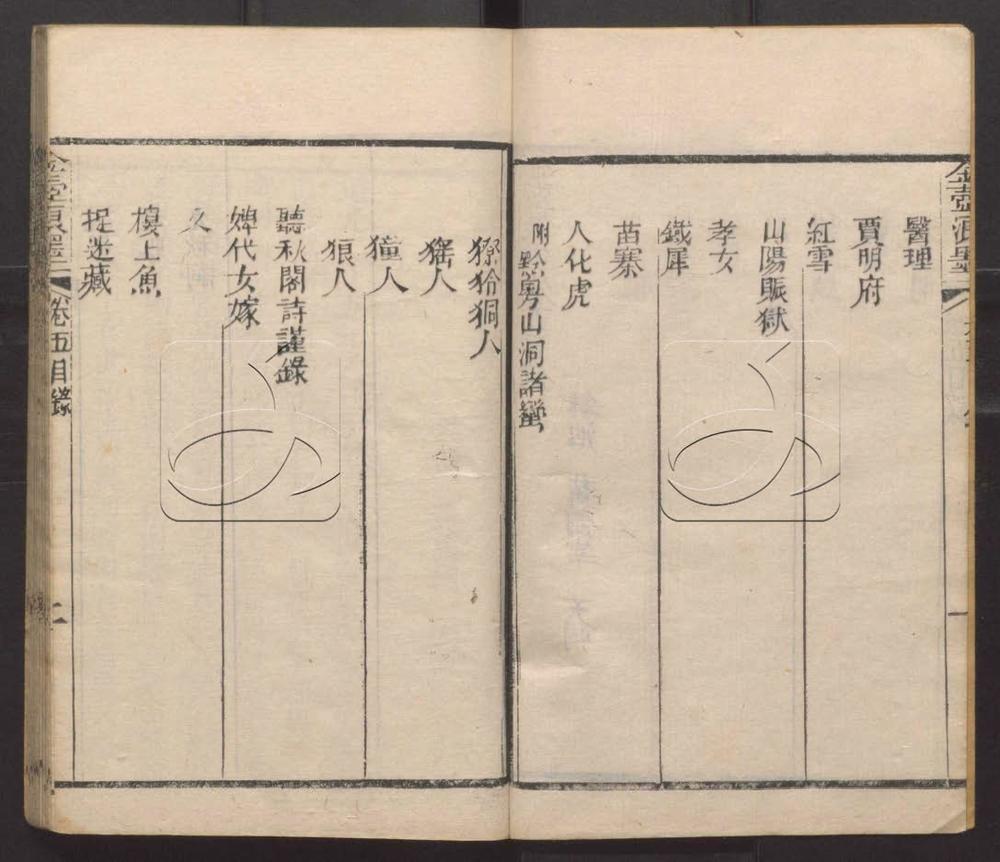 醫理
賈明府
紅雪
山陽賑獄
孝女
鐵犀
苗寨
人化虎
附黔粵山洞諸蠻
獠狑狪人
猺人
獞人
狼人
聽秋閣詩謹錄
婢代女嫁
又
樓上魚
捉迷藏
卷五目錄
二
金壺
一